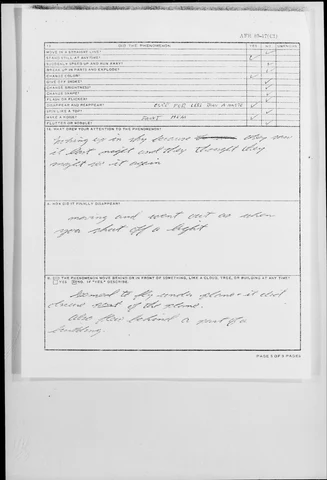 AFR 80-17(C1)
DID THE PHENOMENON YES NO UNKNOWN
MOVE IN A STRAIGHT LINE?
STAND STILL AT ANYTIME?
SUDDENLY SPEED UP AND RUN AWAY?
BREAK UP IN PARTS AND EXPLODE?
CHANGE COLOR?
GIVE OFF SMOKE?
CHANGE BRIGHTNESS?
CHANGE SHAPE?
FLASH OR FLICKER?
DISAPPEAR AND REAPPEAR? FOR LESS THAN A MINUTE
SPIN LIKE A TOP?
MAKE A NOISE? FAINT HUM
FLUTTER OR WOBBLE?
WHAT DREW YOUR ATTENTION TO THE PHENOMENON?
looking up in sky because they saw
it last night and they thought they
might see it again
HOW DID IT FINALLY DISAPPEAR?
moving and went out as when
you shut off a light
THE PHENOMENON MOVE BEHIND OR IN FRONT OF SOMETHING, LIKE A CLOUD, TREE, OR BUILDING AT ANY TIME?
YES NO. IF "YES" DESCRIBE.
Seemed to fly under plane + it
part of the plane.
Also flew behind a part of a
building.
PAGE 3 OF 5 PAGES